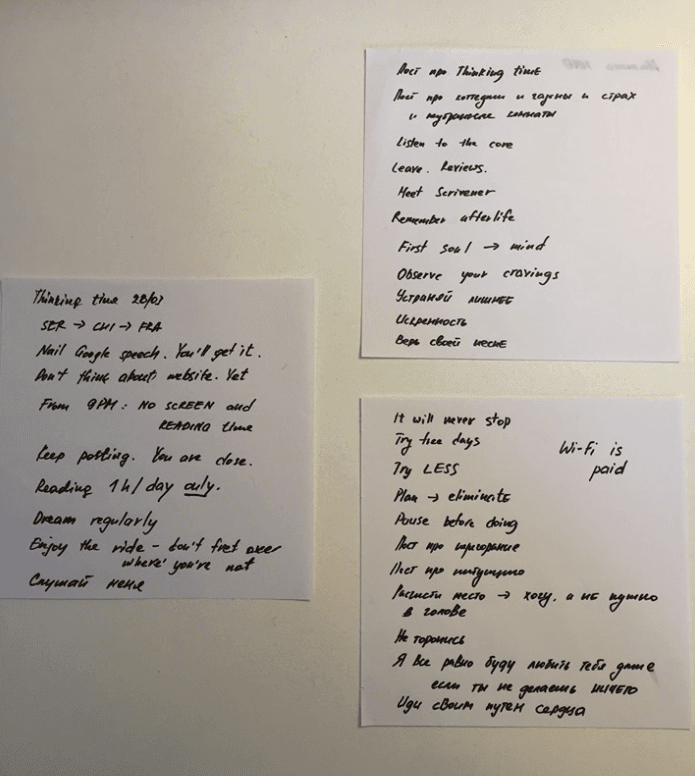 Thinking time 28/07
SER → CHI → FRA
Nail Google speech. You'll get it.
Don't think about website. Yet
From 9PM: NO SCREEN and
READING time
Keep posting. You are close.
Reading 1h/day only.
Dream regularly
Enjoy the ride – don't fret over
where you're not
Слушай меня
Пост про Thinking time
Пост про коттеджи и и страх
и комнаты
Listen to the core
Leave. Reviews.
Meet Scrivener
Remember afterlife
First soul → mind
Observe your cravings
Устраняй лишнее
Искренность
Верь своей песне
It will never stop
Try free days
Try LESS
Wi-Fi is
paid
Plan → eliminate
Pause before doing
Пост про
Пост про интуицию
Расчисти место → хочу, а не нужно
в голове
Не торопись
Я все равно буду любить тебя даже
если ты не делаешь ничего
Иди своим путем сердца